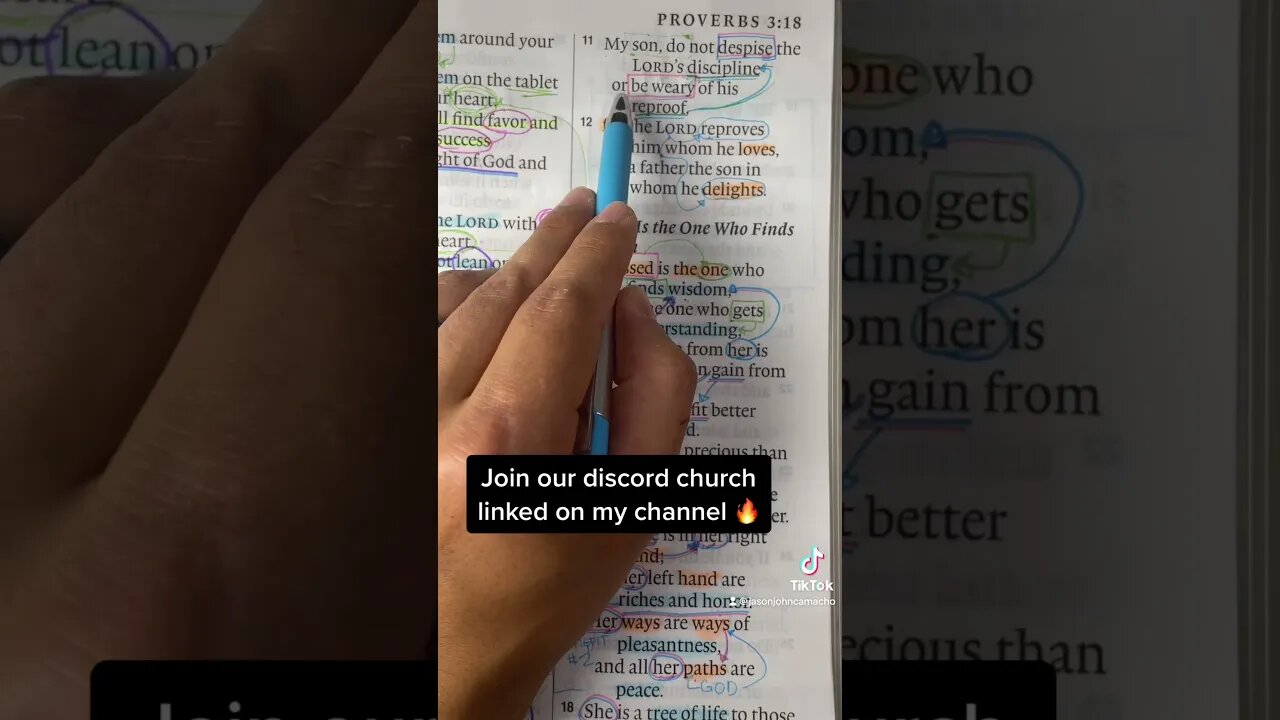 PROVERBS 3:18
em around your
em on the tablet
heart.
ll find favor and
success
ght of God and
he LORD with
eart,
ot lean on
11 My son, do not despise the
LORD's discipline
or be weary of his
reproof,
12 he LORD reproves
him whom he loves,
a father the son in
whom he delights.
Is the One Who Finds
ssed is the one who
finds wisdom,
e one who gets
erstanding,
from her is
gain from
fit better
d.
precious than
e
er.
e is in her right
nd;
her left hand are
riches and honor.
Her ways are ways of
pleasantness,
#2
and all her paths are
peace.
GOD
18 She is a tree of life to those
Join our discord church
linked on my channel 🔥
TikTok
@jasonjohncamacho
ot lean on
one who
om,
who gets
ding,
om her is
gain from
t better
ecious than
Join our
church